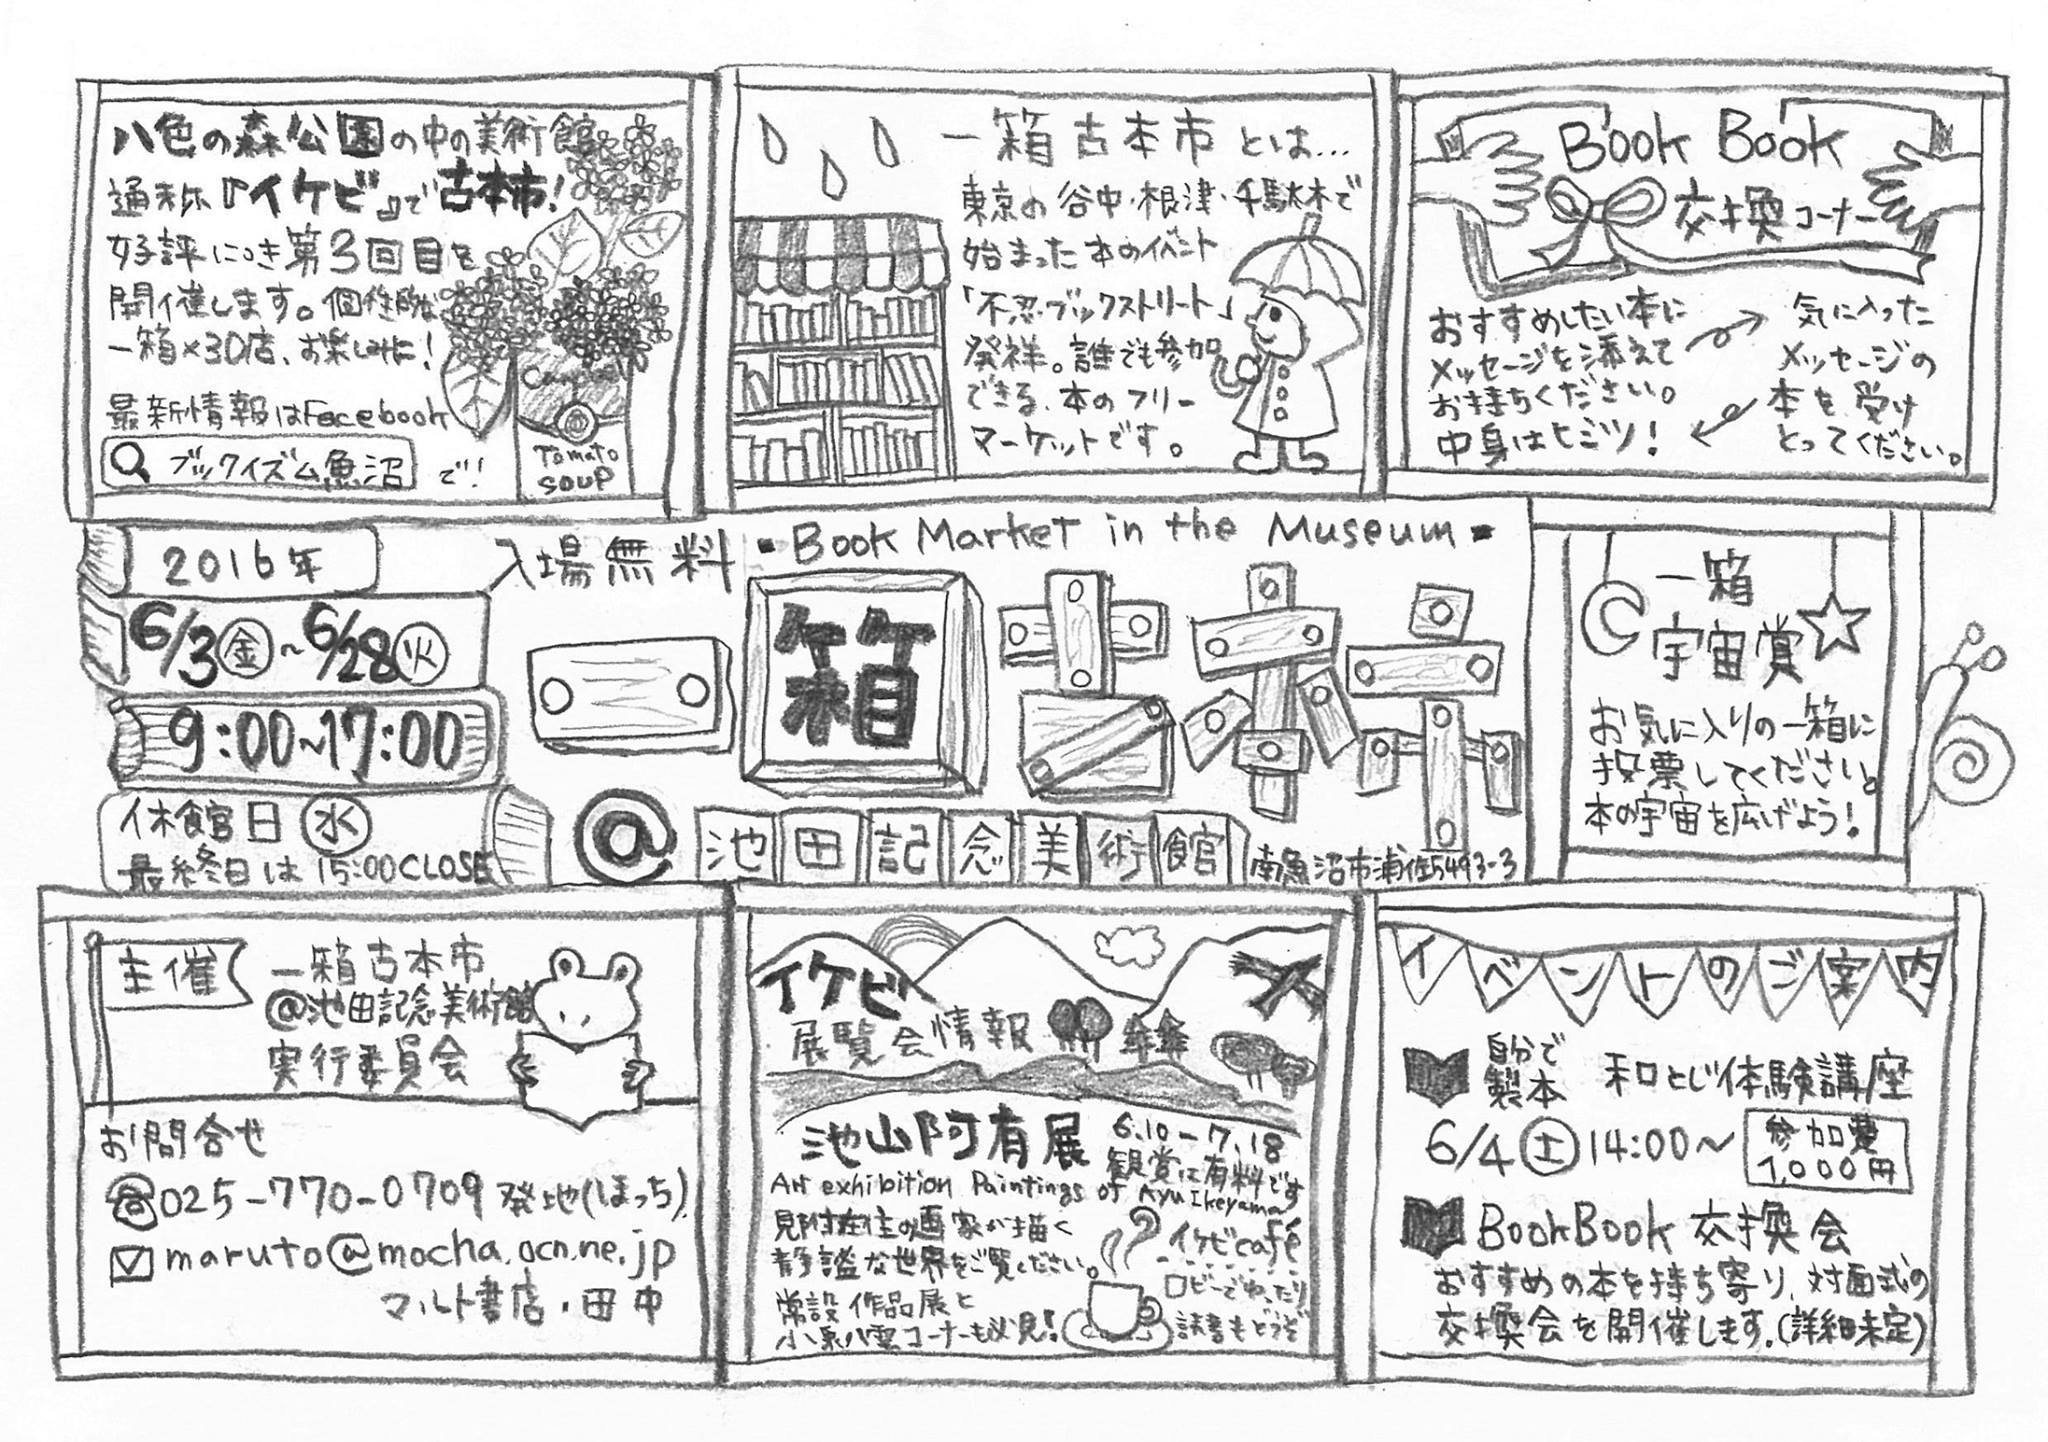 八色の森公園の中の美術館
通称『イケビ』で古本市!
好評につき第3回目を
開催します。個性的な
一箱×30店、お楽しみに!
最新情報はFacebook
ブックイズム魚沼 で!
Campbell
Tomato
SOUP
一箱古本市とは...
東京の谷中・根津・千駄木で
始まった本のイベント
「不忍ブックストリート」
発祥。誰でも参加
できる、本のフリー
マーケットです。
Book Book
交換コーナー
おすすめしたい本に
メッセージを添えて
お持ちください。
中身はヒミツ!
気に入った
メッセージの
本を受け
とってください。
2016年
6/3(金)~6/28(火)
9:00~17:00
休館日(水)
最終日は15:00CLOSE
入場無料
・Book Market in the Museum・
一箱古本市
@池田記念美術館
南魚沼市浦佐5493-3
一箱
宇宙賞
お気に入りの一箱に
投票してください。
本の宇宙を広げよう!
主催
一箱古本市
@池田記念美術館
実行委員会
お問合せ
☎025-770-0709 発地(ほっち)
maruto@mocha.ocn.ne.jp
マルト書店・田中
イケビ
展覧会情報
池山阿有展
6.10-7.18
観賞は有料です
Art exhibition Paintings of Ayu Ikeyama
見附在住の画家が描く
静謐な世界をご覧ください。
常設作品展と
小泉八雲コーナーも必見!
イケビcafé
ロビーでゆったり
読書もどうぞ
イベントのご案内
自分で
製本
和とじ体験講座
6/4(土)14:00~
参加費
1,000円
BookBook 交換会
おすすめの本を持ち寄り、対面式の
交換会を開催します。(詳細未定)